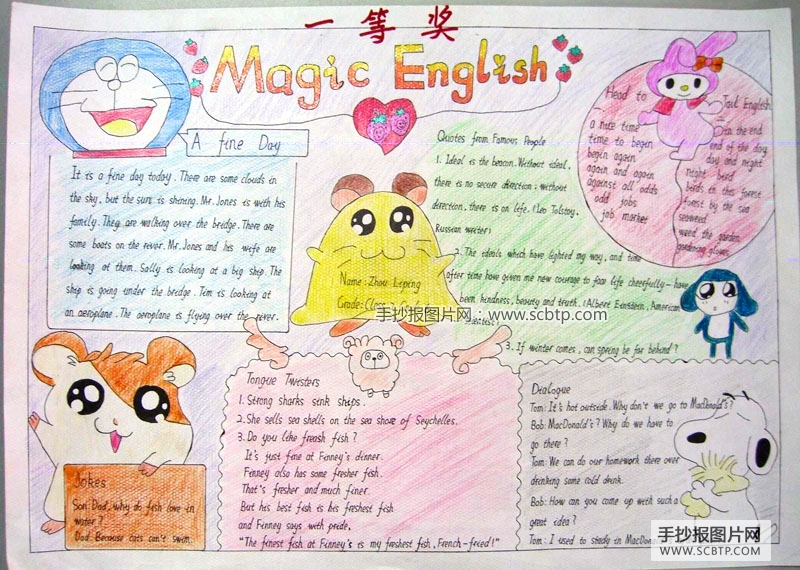 一等奖
Magic English
A fine Day
It is a fine day today. There are some clouds in
the sky, but the sun is shining. Mr. Jones is with his
family. They are walking over the bridge. There are
some boats on the river. Mr. Jones and his wife are
looking at them. Sally is looking at a big ship. The
ship is going under the bridge. Tim is looking at
an aeroplane. The aeroplane is flying over the river.
Name: Zhou Liping
Grade: Class
Quotes from Famous People
1. Ideal is the beacon. Without ideal,
there is no secure direction; without
direction, there is on life. (Leo Tolstoy,
Russian writer)
2. The ideals which have lighted my way, and time
after time have given me new courage to face life cheerfully – have
been kindness, beauty and truth. (Albert Einstein, American
scientist)
3. If winter comes, can spring be far behind?
Head to
Tail English
a nice time
time to begin
begin again
again and again
against all odds
odd jobs
job market
in the end
end of the day
day and night
night bird
birds in this forest
forest by the sea
seaweed
weed the garden
gardening gloves
手抄报图片网：www.scbtp.com
Jokes
Son: Dad, why do fish love in
water?
Dad: Because cats can't swim.
Tongue Twisters
1. Strong sharks sink ships.
2. She sells sea shells on the sea shore of Seychelles.
3. Do you like freash fish?
It's just fine at Finney's dinner.
Finney also has some fresher fish.
That's fresher and much finer.
But his best fish is his freshest fish
and Finney says with pride,
"The finest fish at Finney's is my freshest fish, French-fried!"
Dialogue
Tom: It's hot outside. Why don't we go to MacDonald's?
Bob: MacDonald's? Why do we have to
go there?
Tom: We can do our homework there over
drinking some cold drunk.
Bob: How can you come up with such a
great idea?
Tom: I used to study in MacDona
手抄报图片网
WWW.SCBTP.COM